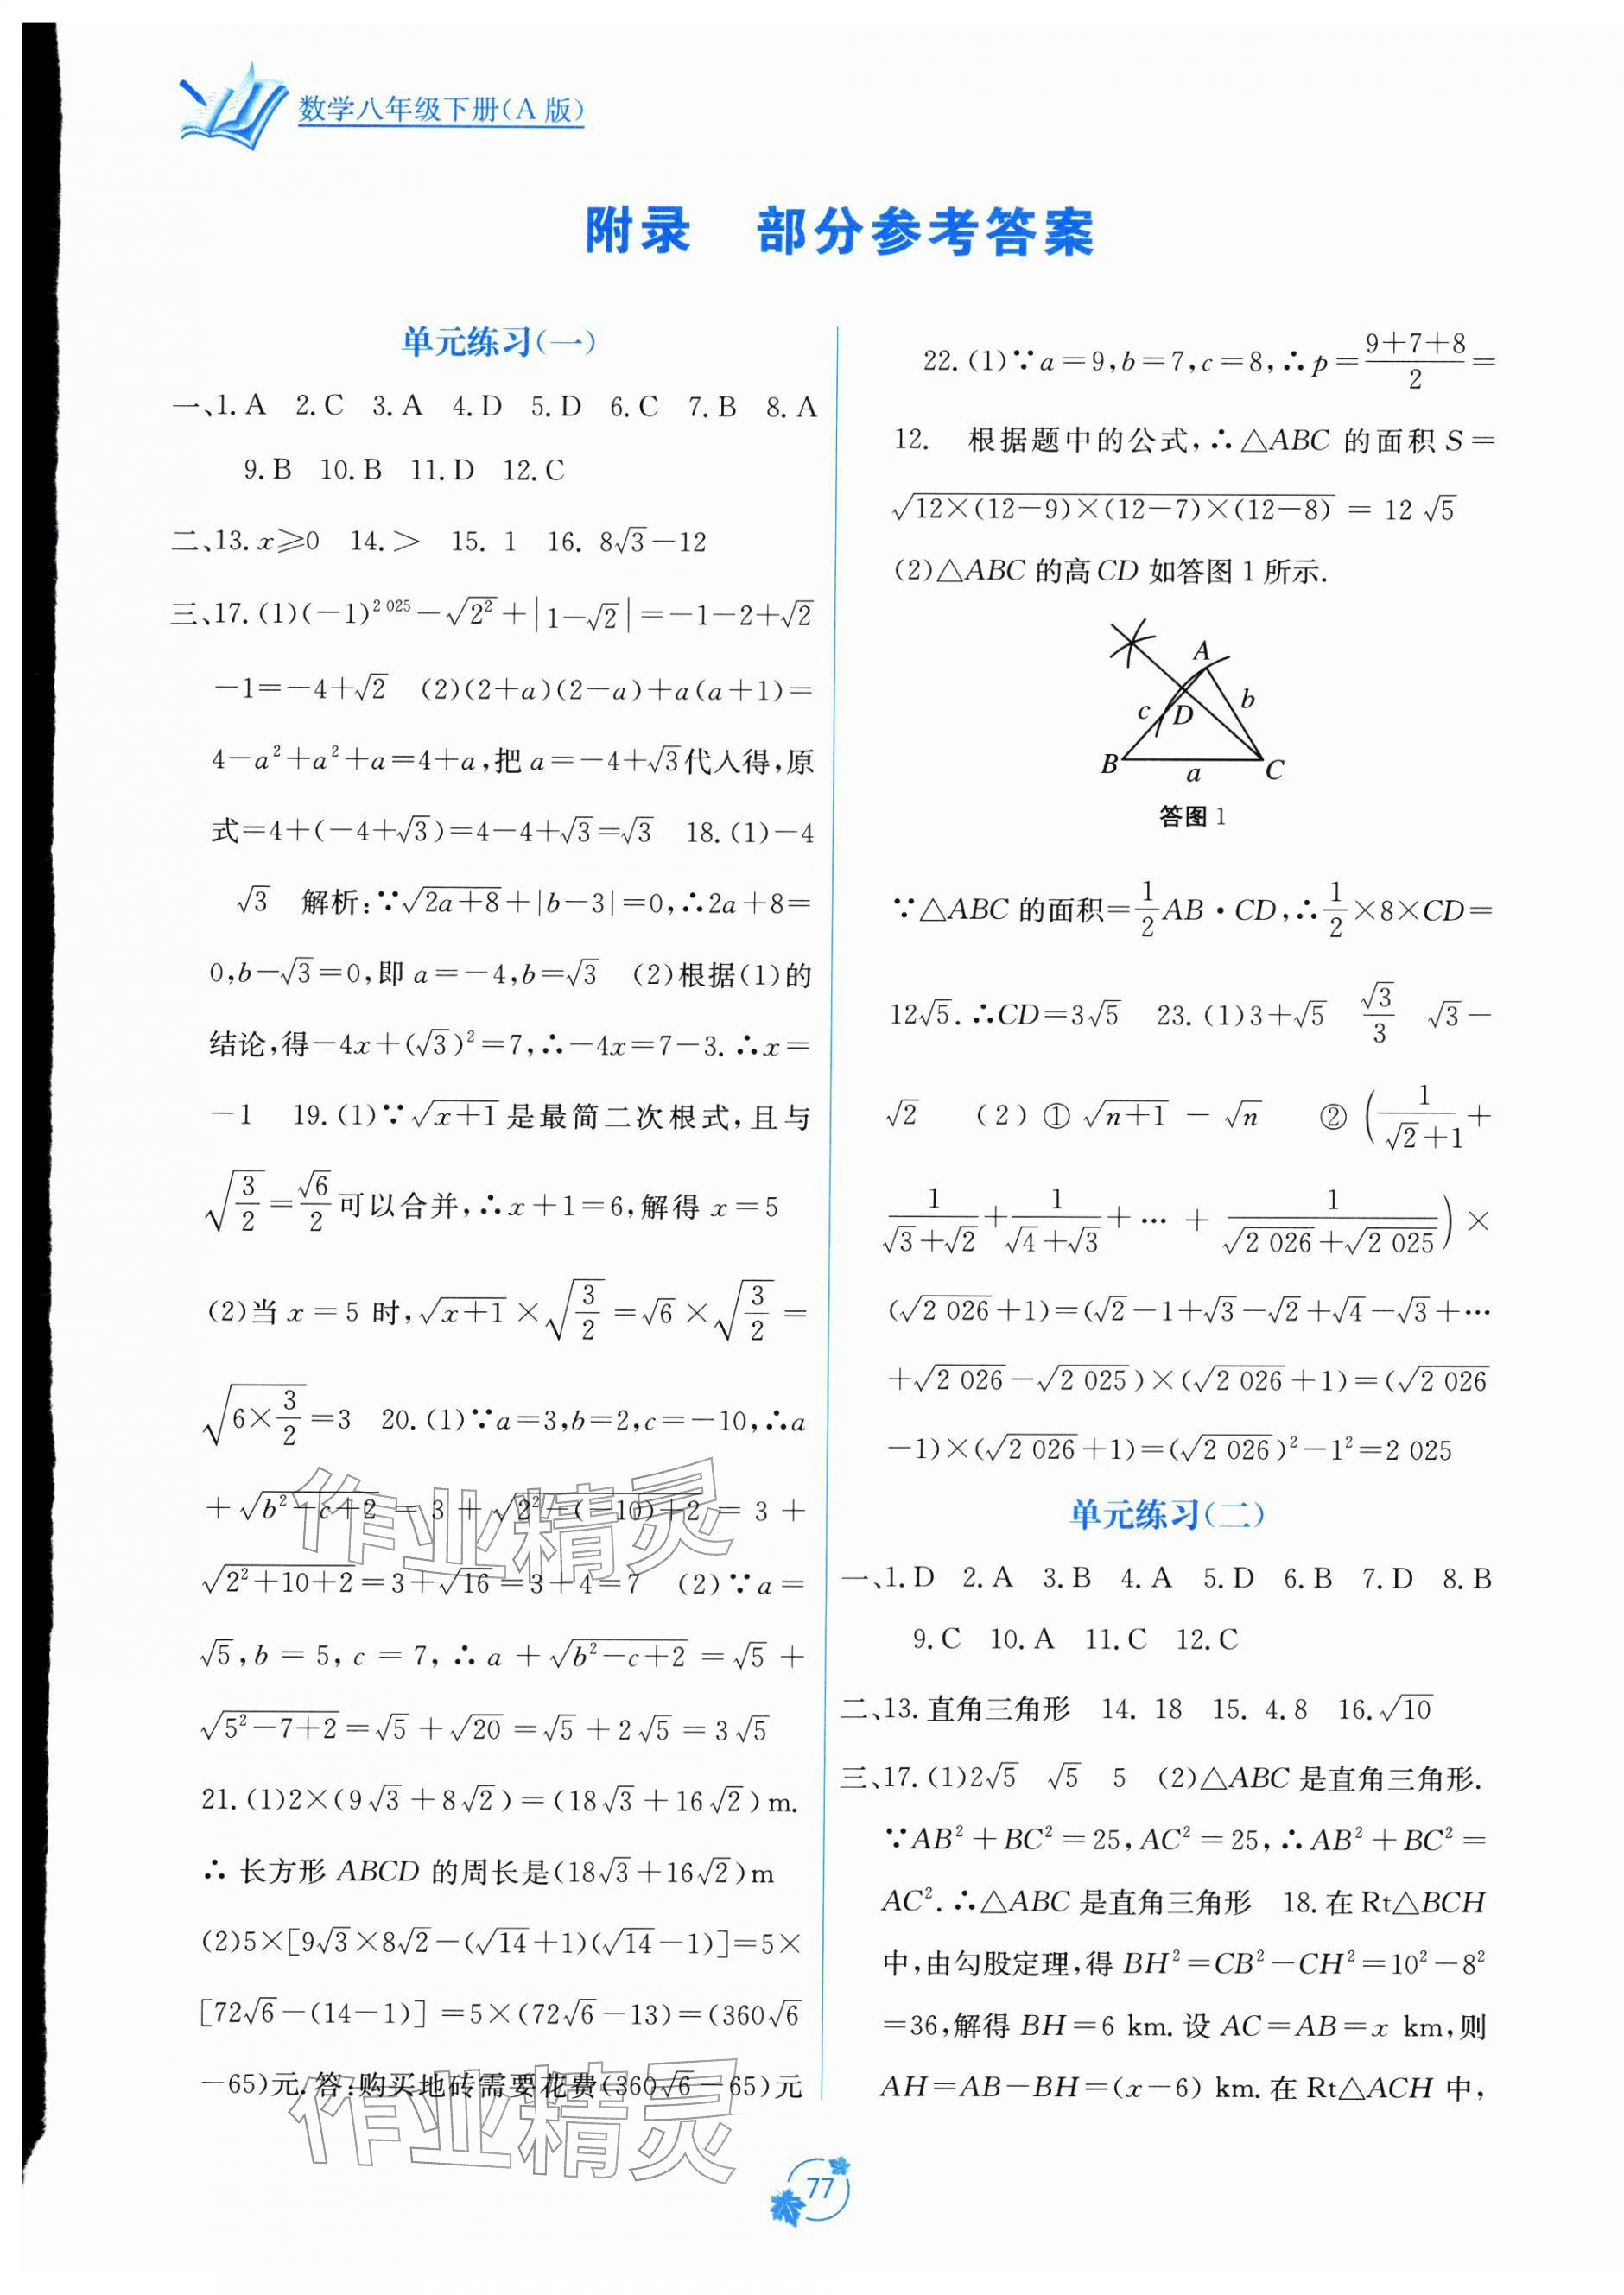 数学八年级下册(A版)
附录 部分参考答案
单元练习(一)
一、1. A 2. C 3. A 4. D 5. D 6. C 7. B 8. A
9. B 10. B 11. D 12. C
二、13. x⩾0 14. > 15. 1 16. 8√3−12
三、17. (1)(−1)^2 025−√(2²)+|1−√2|=−1−2+√2
−1=−4+√2 (2)(2+a)(2−a)+a(a+1)=
4−a²+a²+a=4+a,把a=−4+√3代入得,原
式=4+(−4+√3)=4−4+√3=√3 18. (1)−4
√3 解析:∵√(2a+8)+|b−3|=0,∴2a+8=
0,b−√3=0,即a=−4,b=√3 (2)根据(1)的
结论,得−4x+(√3)²=7,∴−4x=7−3. ∴x=
−1 19. (1)∵√(x+1)是最简二次根式,且与
√(3/2)=√6/2可以合并,∴x+1=6,解得x=5
(2)当x=5时,√(x+1)×√(3/2)=√6×√(3/2)=
√(6×3/2)=3 20. (1)∵a=3,b=2,c=−10,∴a
+√(b²−c+2)=3+√(2²−(−10)+2)=3+
√(2²+10+2)=3+√16=3+4=7 (2)∵a=
√5,b=5,c=7,∴a+√(b²−c+2)=√5+
√(5²−7+2)=√5+√20=√5+2√5=3√5
21. (1)2×(9√3+8√2)=(18√3+16√2)m.
∴长方形ABCD的周长是(18√3+16√2)m
(2)5×[9√3×8√2−(√14+1)(√14−1)]=5×
[72√6−(14−1)]=5×(72√6−13)=(360√6
−65)元. 答:购买地砖需要花费(360√6−65)元
22. (1)∵a=9,b=7,c=8,∴p=(9+7+8)/2=
12. 根据题中的公式,∴△ABC的面积S=
√(12×(12−9)×(12−7)×(12−8))=12√5
(2)△ABC的高CD如答图1所示.
A
c D b
B a C
答图1
∵△ABC的面积=1/2AB·CD,∴1/2×8×CD=
12√5. ∴CD=3√5 23. (1)3+√5 √3/3 √3−
√2 (2)①√(n+1)−√n ②(1/(√2+1)+
1/(√3+√2)+1/(√4+√3)+⋯+1/(√2 026+√2 025))×
(√2 026+1)=(√2−1+√3−√2+√4−√3+⋯
+√2 026−√2 025)×(√2 026+1)=(√2 026
−1)×(√2 026+1)=(√2 026)²−1²=2 025
单元练习(二)
一、1. D 2. A 3. B 4. A 5. D 6. B 7. D 8. B
9. C 10. A 11. C 12. C
二、13. 直角三角形 14. 18 15. 4.8 16. √10
三、17. (1)2√5 √5 5 (2)△ABC是直角三角形.
∵AB²+BC²=25,AC²=25,∴AB²+BC²=
AC². ∴△ABC是直角三角形 18. 在Rt△BCH
中,由勾股定理,得BH²=CB²−CH²=10²−8²
=36,解得BH=6 km. 设AC=AB=x km,则
AH=AB−BH=(x−6) km. 在Rt△ACH中,
作业精灵
作业精灵
77